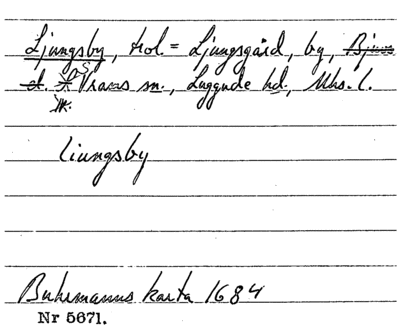 Ljungsby, trol = Ljungsgård, by,
V. Vrams sn., Luggude hd., Mhs. l.
liungsby
Buhrmanns karta 1684
Nr 5671.